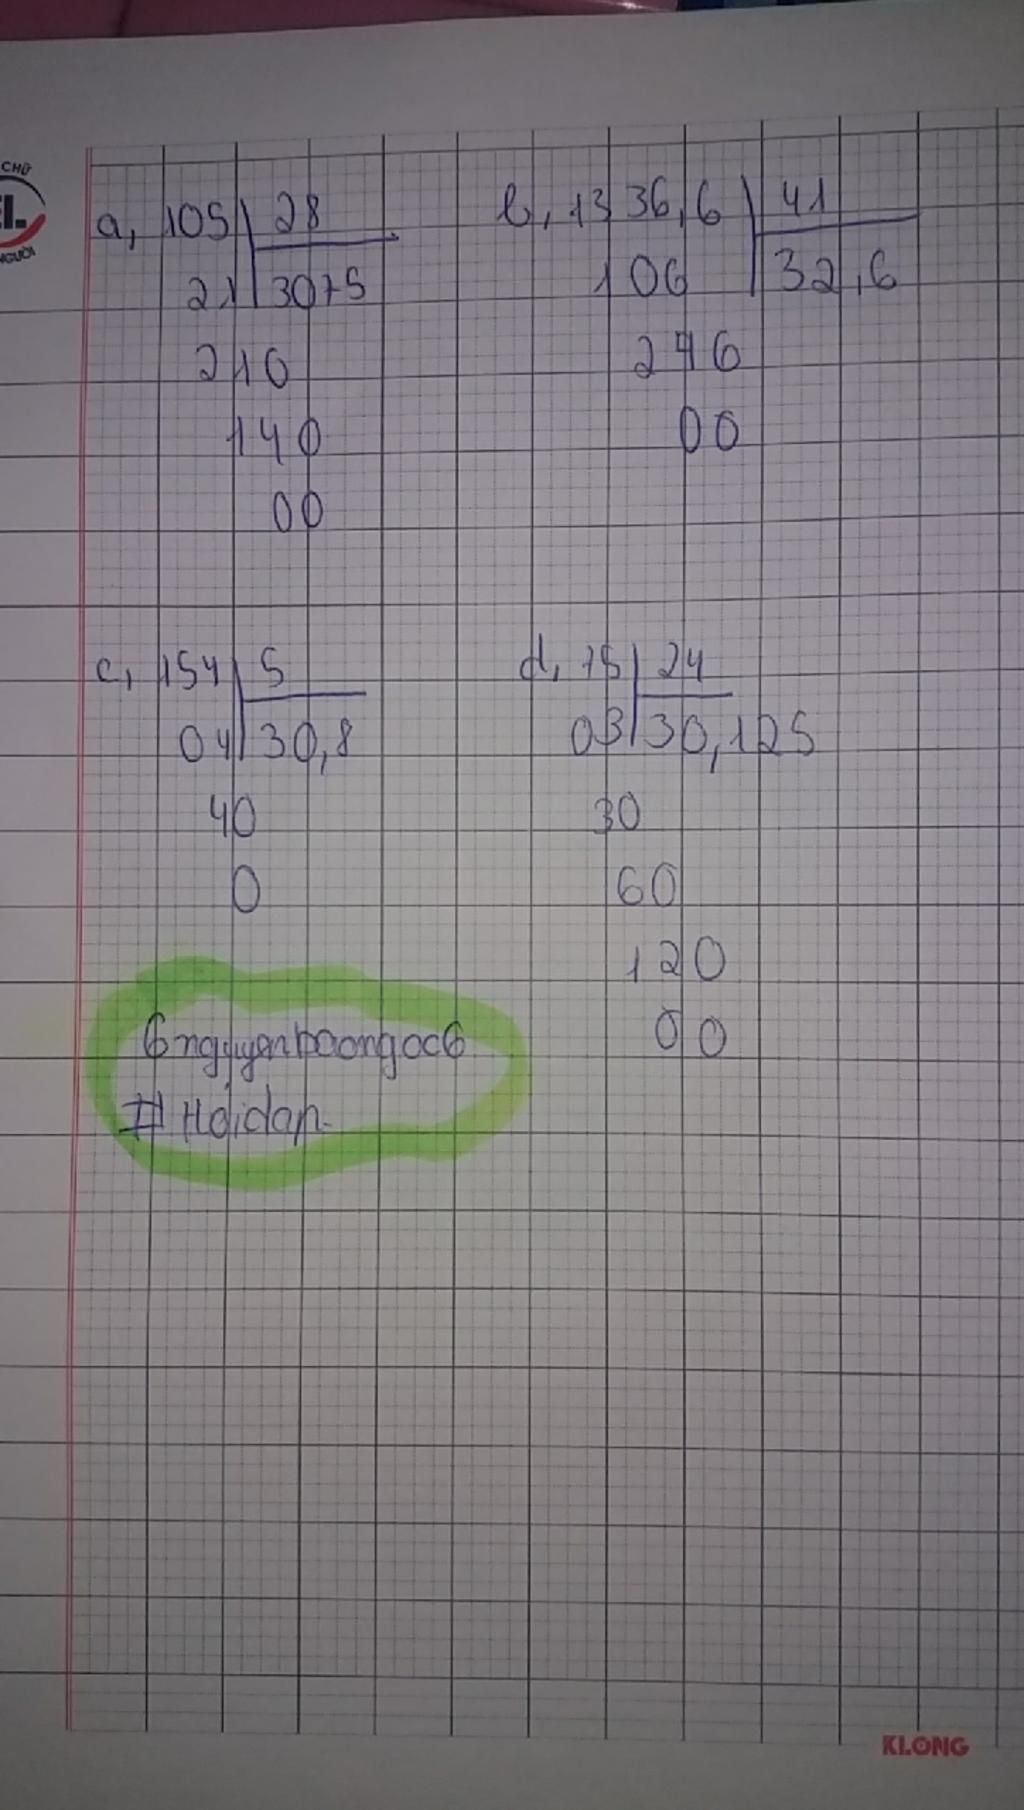 CHỮ
EL
NGƯỜI
a, 105 28
21 3075
210
140
00
b, 1336,6 41
106 32,6
246
00
c, 154 5
04 30,8
40
0
d, 75 24
03 30,125
30
60
120
00
6nguyenbaongoc6
# Hoidap.
KLONG